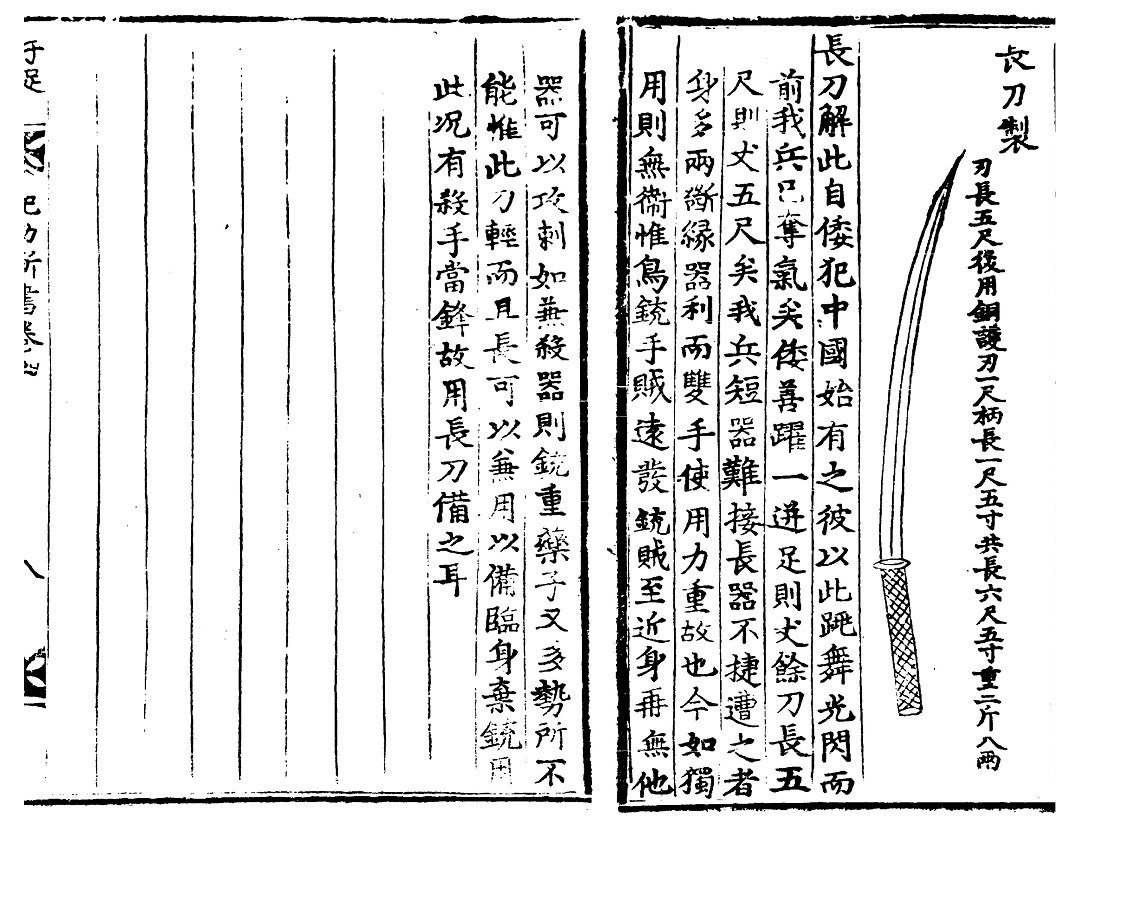 長刀製
刃長五尺後用銅護刃一尺柄長一尺五寸共長六尺五寸重二斤八兩
長刀解此自倭犯中國始有之彼以此跳舞光閃而
前我兵已奪氣矣倭善躍一迸足則丈餘刀長五
尺則丈五尺矣我兵短器難接長器不捷遭之者
身多兩斷緣器利而雙手使用力重故也今如獨
用則無衞惟鳥銃手賊遠發銃賊至近身再無他
器可以攻刺如兼殺器則銃重藥子又多勢所不
能惟此刀輕而且長可以兼用以備臨身棄銃用
此況有殺手當鋒故用長刀備之耳